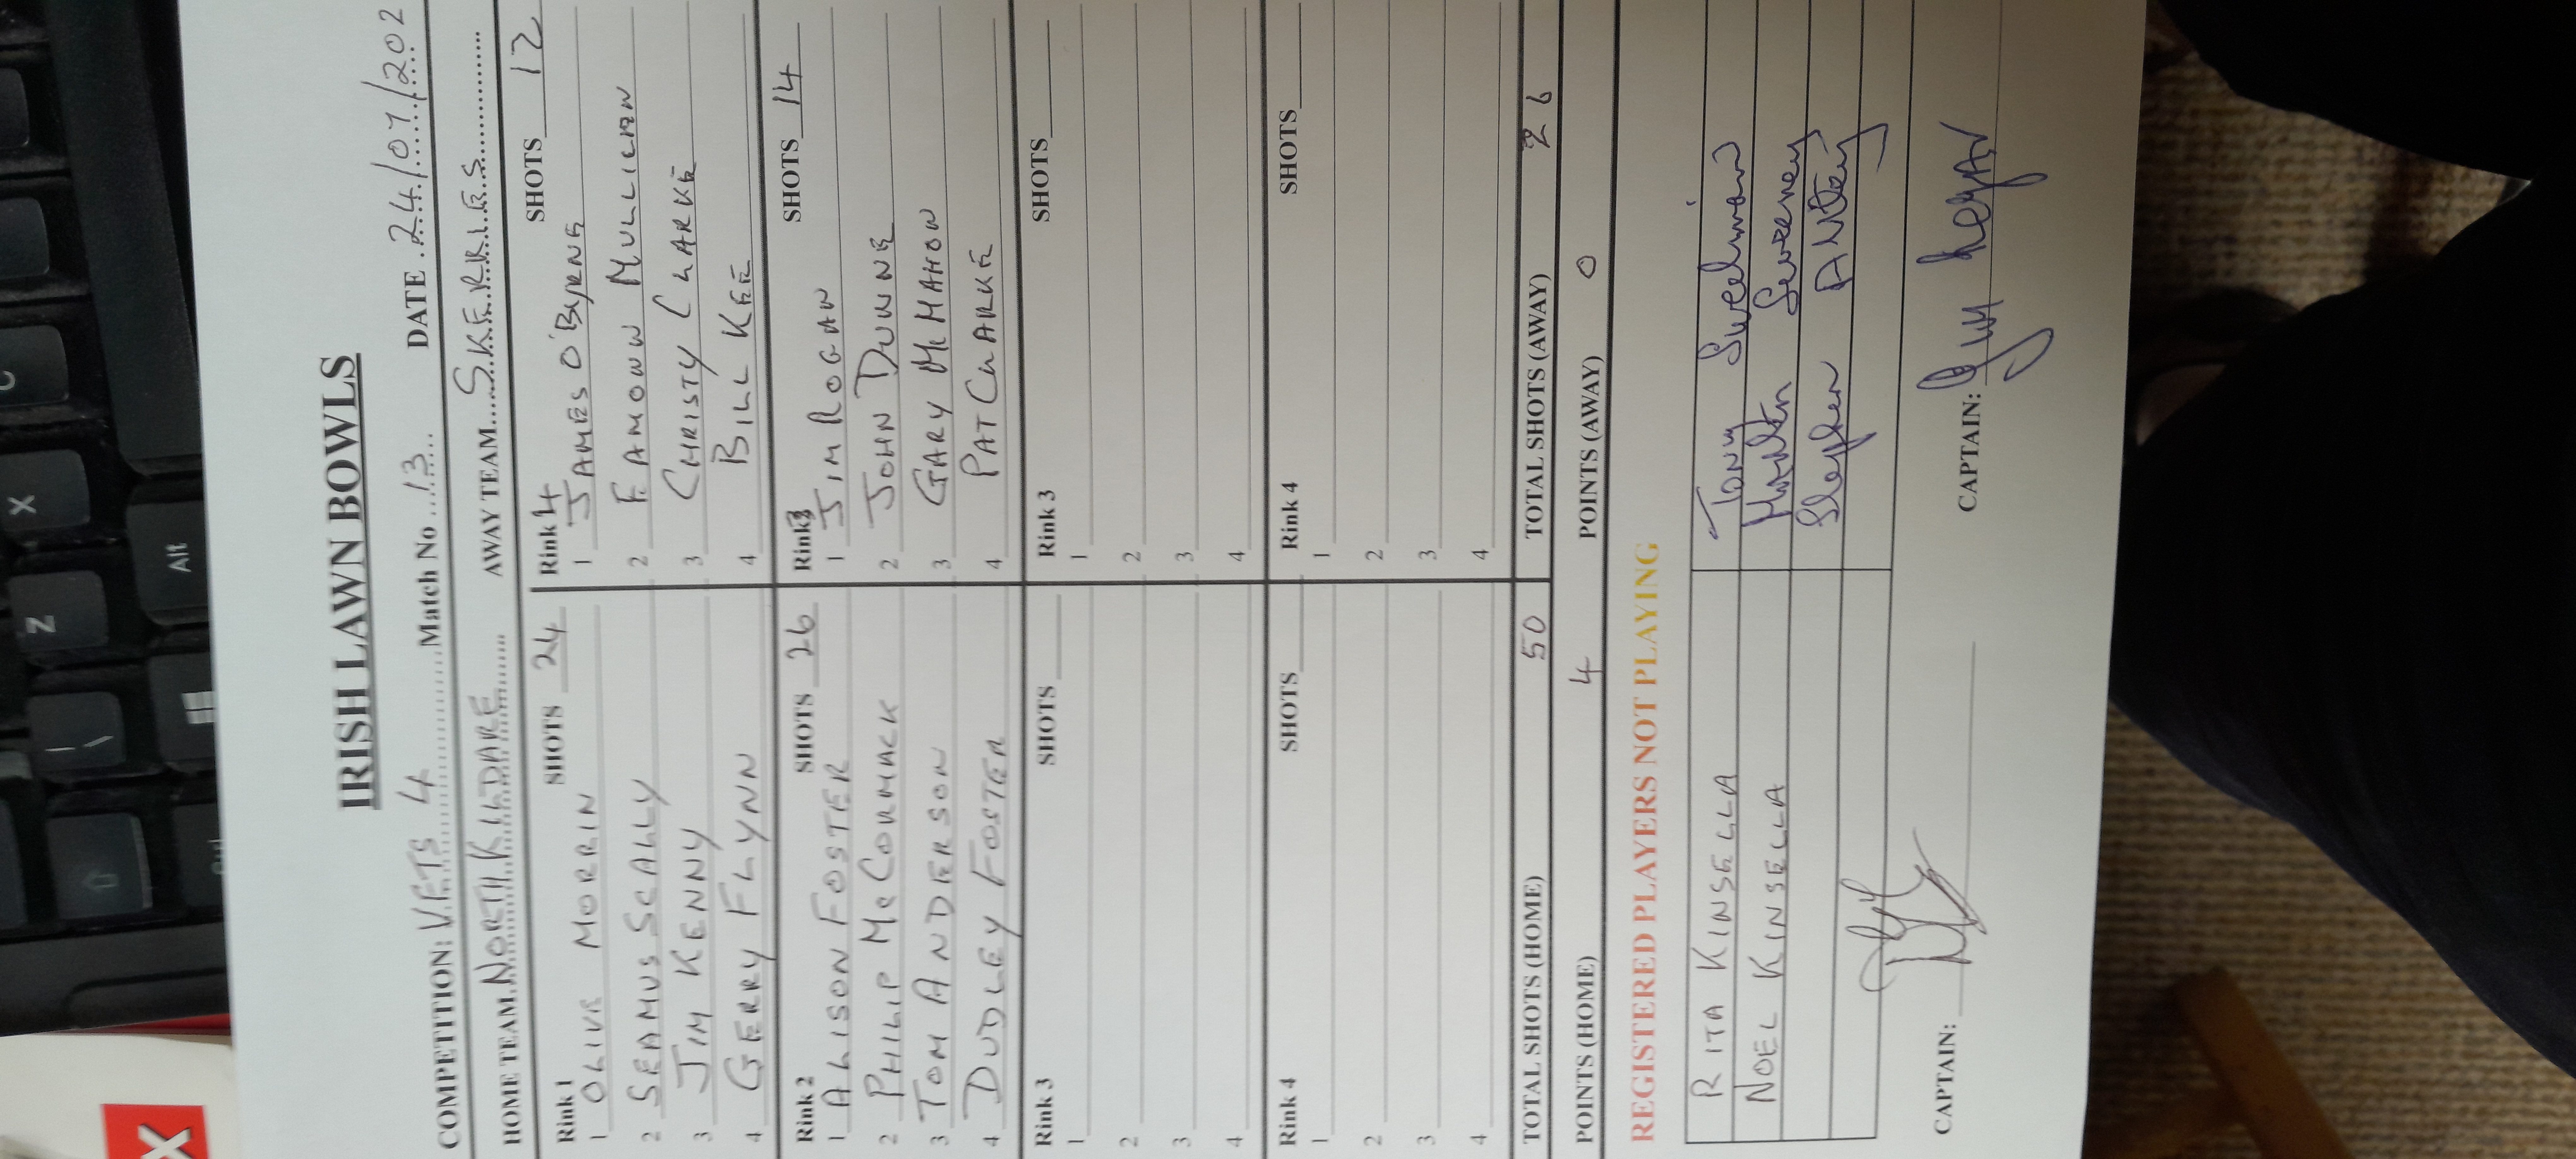 IRISH LAWN BOWLS
COMPETITION: VETS 4 Match No 13 DATE 24/07/202
HOME TEAM NORTH KILDARE AWAY TEAM SKERRIES
Rink 1 SHOTS 24 Rink 4 SHOTS 12
1 OLIVE MORRIN 1 JAMES O'BYRNE
2 SEAMUS SCALLY 2 EAMONN MULLICAN
3 JIM KENNY 3 CHRISTY CLARKE
4 GERRY FLYNN 4 BILL KEE
Rink 2 SHOTS 26 Rink 3 SHOTS 14
1 ALISON FOSTER 1 JIM ROGAN
2 PHILIP McCORMACK 2 JOHN DUNNE
3 TOM ANDERSON 3 GARY McMAHON
4 DUDLEY FOSTER 4 PAT CLARKE
Rink 3 SHOTS Rink 3 SHOTS
1 1
2 2
3 3
4 4
Rink 4 SHOTS Rink 4 SHOTS
1 1
2 2
3 3
4 4
TOTAL SHOTS (HOME) 50 TOTAL SHOTS (AWAY) 26
POINTS (HOME) 4 POINTS (AWAY) 0
REGISTERED PLAYERS NOT PLAYING
RITA KINSELLA Tony Sweetman
NOEL KINSELLA Martin Sweeney
Stephen
CAPTAIN: CAPTAIN:
Alt
Z
X
C